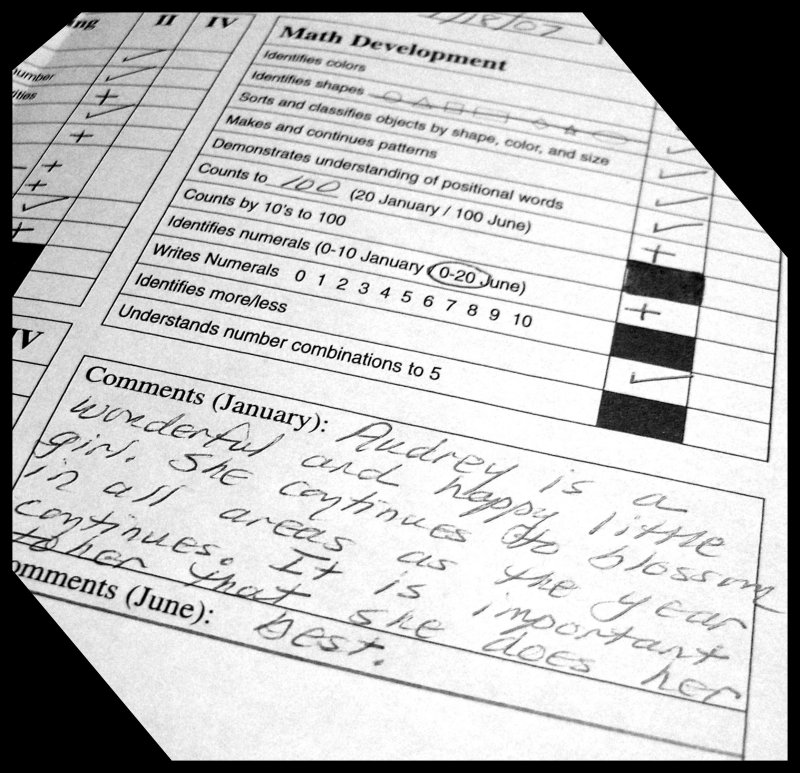 II IV
number
Math Development
Identifies colors
Identifies shapes
Sorts and classifies objects by shape, color, and size
Makes and continues patterns
Demonstrates understanding of positional words
Counts to 100 (20 January / 100 June)
Counts by 10's to 100
Identifies numerals (0-10 January (0-20 June)
Writes Numerals 0 1 2 3 4 5 6 7 8 9 10
Identifies more/less
Understands number combinations to 5
IV
Comments (January): Audrey is a
wonderful and happy little
girl. She continues to blossom
in all areas as the year
continues. It is important
to her that she does her
best.
Comments (June):